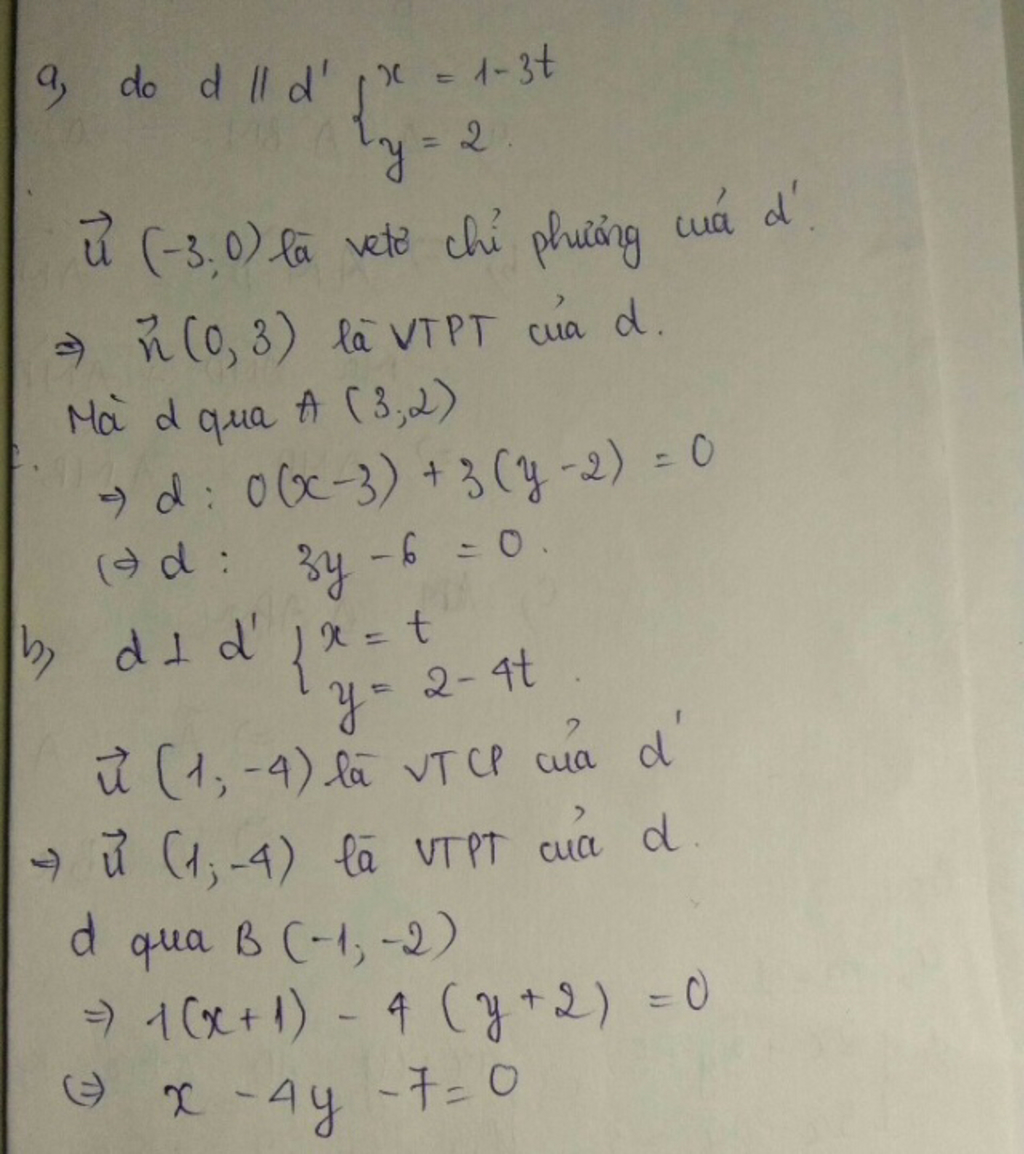 a, do d // d' { x = 1-3t
y = 2.
u⃗ (-3; 0) là vectơ chỉ phương của d'.
⇒ n⃗ (0, 3) là VTPT của d.
Mà d qua A (3;2)
⇒ d : 0(x-3) + 3(y-2) = 0
(⇒ d : 3y - 6 = 0.
b, d ⊥ d' { x = t
y = 2 - 4t.
u⃗ (1; -4) là VTCP của d'
⇒ u⃗ (1; -4) là VTPT của d.
d qua B (-1; -2)
⇒ 1(x+1) - 4 (y+2) = 0
(⇒ x - 4y - 7 = 0